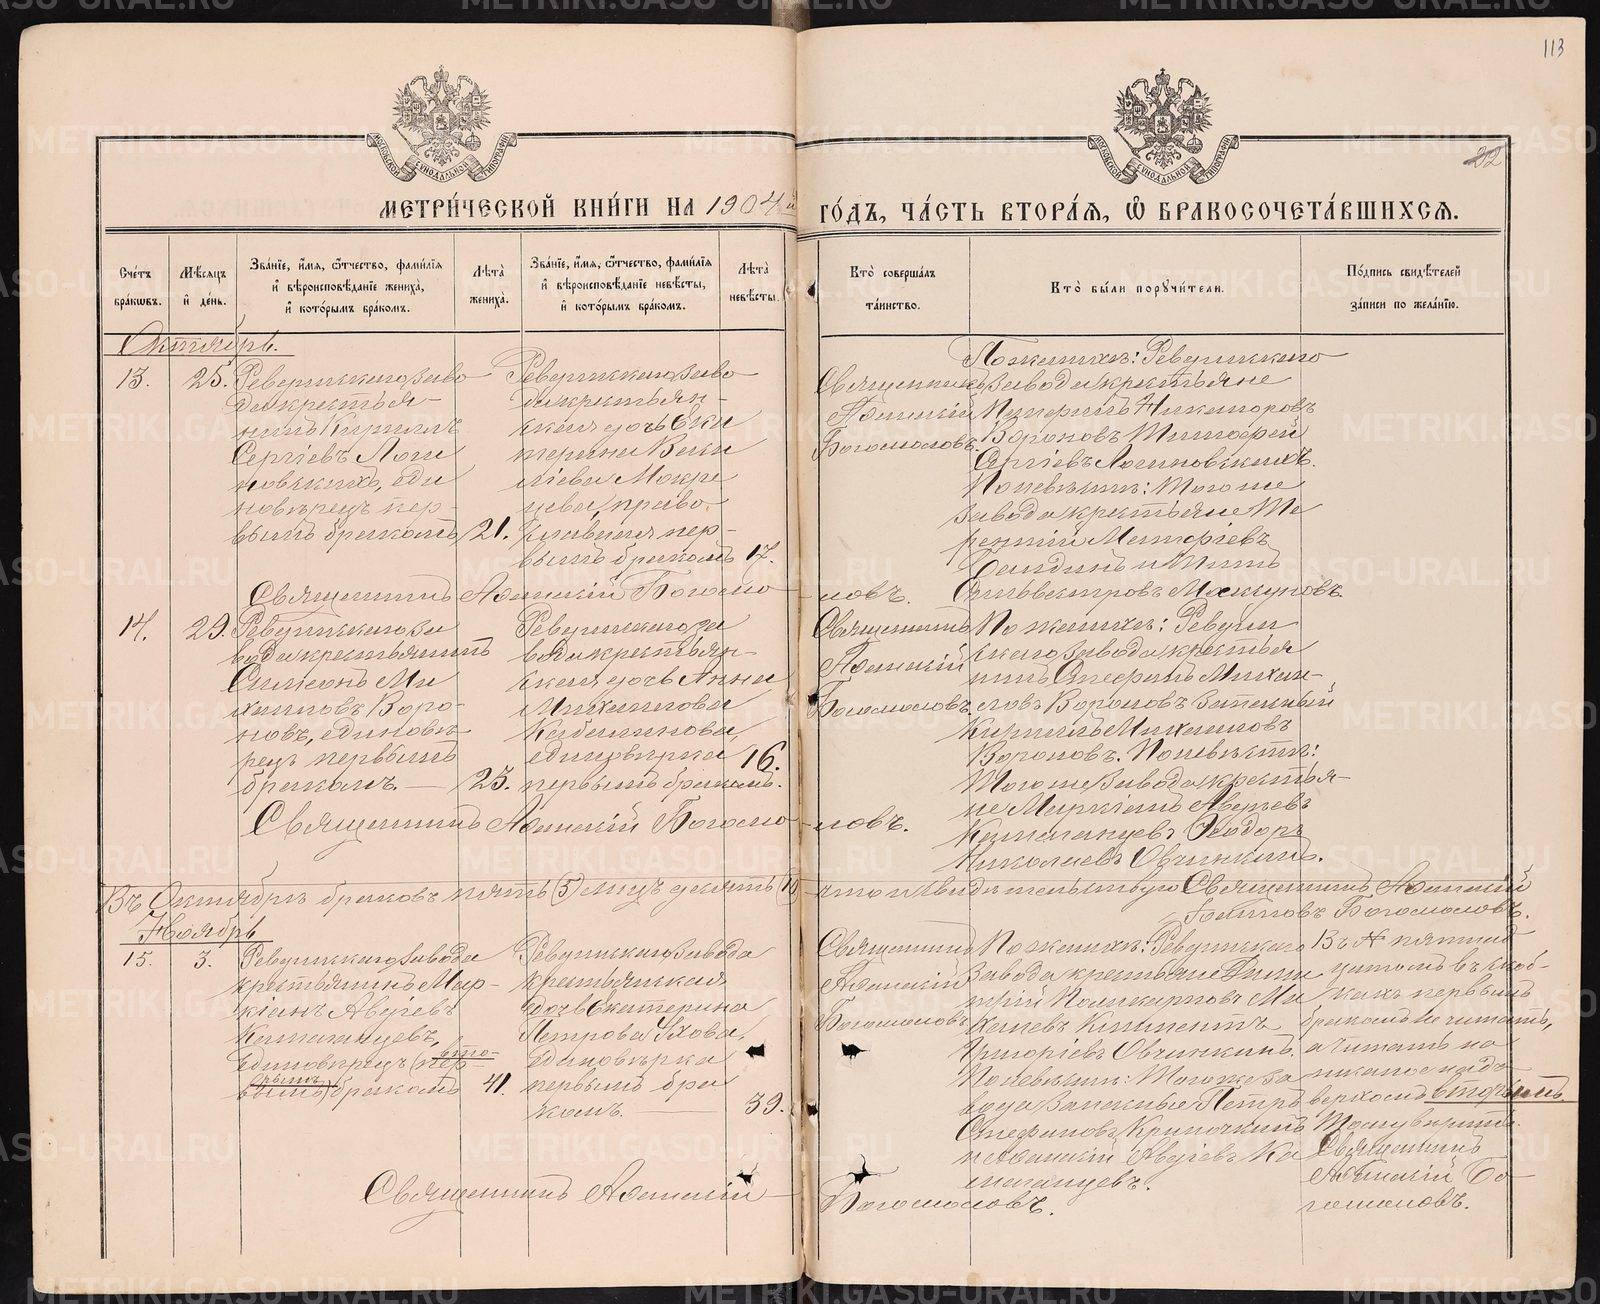 113
22
МЕТРИ́ЧЕСКОЙ КНИ́ГИ НА 1904й ГО́ДЪ, ЧА́СТЬ ВТОРА́Я, Ѽ БРАКОСОЧЕТА́ВШИХСЯ.
Сче́тъ бра́кѡвъ.
Мѣ́сяцъ и де́нь.
Зва́ніе, и́мя, ѻ҆́тчество, фами́лія и҆ вѣроисповѣ́даніе жениха̀, и҆ кото́рымъ бра́комъ.
Лѣ́та жениха̀.
Зва́ніе, и́мя, ѻ҆́тчество, фами́лія и҆ вѣроисповѣ́даніе невѣ́сты, и҆ кото́рымъ бра́комъ.
Лѣ́та невѣ́сты.
Кто̀ соверша́лъ та́инство.
Кто̀ бы́ли порꙋчи́тели.
По́дпись свидѣ́телей за́писи по жела́нію.
Октябрь.
13.
25.
Ревдинскаго заво
да крестья-
нинъ Кириллъ
Сергіевъ Логи
новскихъ, еди
новѣрецъ пер-
вымъ бракомъ
21.
Ревдинскаго заво
да крестьян-
ская дочь Ека
терина Васи
ліева Мокре
цева, право
славная пер-
вымъ бракомъ
17.
Священникъ
Аѳанасій
Богомоловъ.
По женихѣ: Ревдинскаго
завода крестьяне
Никифоровъ
Вороновъ Тимоѳей
Сергіевъ Логиновскихъ.
По невѣстѣ: Того же
завода крестьяне Те
рентій
и Титъ
Сильвестровъ
Священникъ Аѳанасій Богомо
ловъ.
14.
29.
Ревдинскаго за
вода крестьянинъ
Симеонъ Ми
хаиловъ Воро-
новъ, единовѣ
рецъ первымъ
бракомъ.
23.
Ревдинскаго за
вода крестьян-
ская дочь Анна
Михаилова
Кабалинова
единовѣрка
первымъ бракомъ.
16.
Священникъ
Аѳанасій
Богомоловъ.
По женихѣ: Ревдин
скаго завода крестья
нинъ Стефанъ Михаи-
ловъ Вороновъ Запасный
Кириллъ Михаиловъ
Вороновъ. По невѣстѣ:
Того же завода крестья-
не Маркіанъ Авдіевъ
Каматанцевъ Ѳеодоръ
Николаевъ Овчинкинъ.
Священникъ Аѳанасій Богомо
ловъ.
Въ Октябрѣ браковъ пять (5) лицъ десять (10)
что и свидѣтельствую Священникъ Аѳанасій
Богомоловъ.
Ноябрь
15.
3.
Ревдинскаго завода
крестьянинъ Мар-
кіанъ Авдіевъ
Каматанцевъ,
Единовѣрецъ (пер-
вто-
рымъ
вымъ) бракомъ
41.
Ревдинскаго завода
крестьянская
дочь Екатерина
Петрова Ухова,
Единовѣрка
первымъ бра
комъ.
39.
Священникъ
Аѳанасій
Богомоловъ
По женихѣ: Ревдинскаго
завода крестьяне Дими
трій Поликарповъ Ма
Климентъ
Григоріевъ Овчинкинъ.
По невѣстѣ: Того же за
вода Запасные Петръ
Стефановъ
и Аѳанасій Авдіевъ Ка
матанцевъ.
Въ № пятнад
цатомъ въ скоб-
кахъ первымъ
бракомъ не читать,
а читать на
писанное надъ
верхомъ вторымъ.
Тому вѣрить.
Священникъ
Аѳанасій Бо-
гомоловъ.
Священникъ Аѳанасій
Богомоловъ.